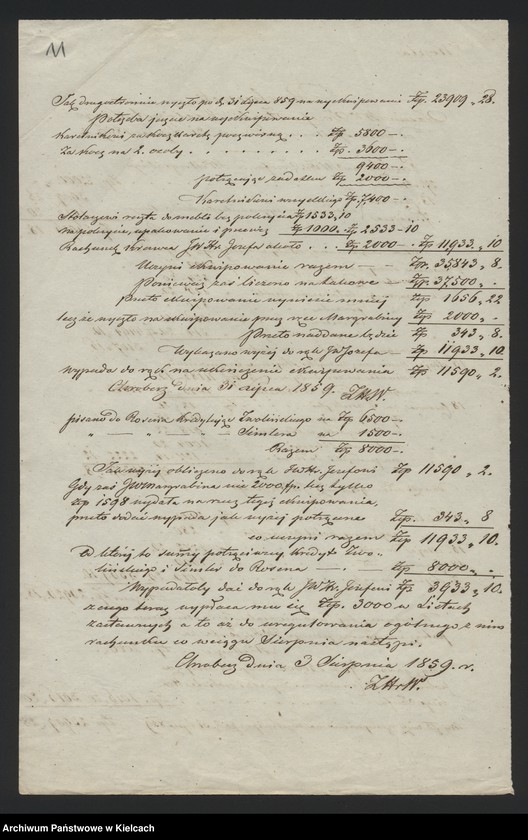 11
Jak drugostronnie wyszło po d. 31 Lipca 859 na wyekwipowanie Złp. 23909 „ 28.
Potrzeba jeszcze na wyekwipowanie
Karetnikowi za kocz karetę poczwórną . . . Złp. 5800 —.
Za kocz na 2. osoby . . . . . . . . . Złp. 3600 —.
9400 —.
potrącając zadatku Złp. 2000 —.
Karetnikowi wszystkiego Złp. 7400 —.
Stolarzowi reszta za meble bez pokrycia Złp 1533,10
na pokrycie, opakowanie i przewóz Złp 1000. Złp 2533 — 10
Rachunek krawca JW Hr. Józefa około . . . Złp 2000 —. Złp 11933 „ 10
Uczyni ekwipowanie razem — Złp. 35843 „ 8.
Ponieważ zaś liczono na takowe — Złp. 37,500 „ .
przeto ekwipowanie wyniesie mniej Złp 1656 „ 22
lecz że wyszło na ekwipowanie przez ręce Margrabiny Złp 2000 „ .
Przeto naddane będzie Złp 343 „ 8.
Wykazano wyżej do rąk JW Józefa — Złp 11933 „ 10.
wypada do rąk na ukończenie ekwipowania Złp 11590 „ 2.
Chroberz dnia 31 Lipca 1859. ZHrW.
pisano do Rosena kredytując Zwolińskiego na Złp 6500 —.
„ — „ — „ — Simlera na 1500 —.
Razem Złp 8000 —.
Jak wyżej obliczono do rąk JW Hr. Józefowi Złp 11590 „ 2.
Gdy zaś JW Margrabina nie 2000 złp. lecz tylko
złp 1598 wydała na rzecz tegoż ekwipowania,
przeto dodać wypada jak wyżej potrącone Złp. 343 „ 8
co uczyni razem Złp 11933 „ 10.
Od której to sumy potrąciwszy kredyt Zwo-
lińskiego i Simler do Rosena — . — . Złp 8000 „ .
Wypadałoby dać do rąk JW Hr. Józefowi Złp 3933 „ 10.
z czego teraz wypłaca mu się Złp. 3000 w Listach
zastawnych a to aż do uregulowania ogólnego z nim
rachunku co w ciągu Sierpnia nastąpi.
Chroberz dnia 3 Sierpnia 1859. r.
ZHrW.
Archiwum Państwowe w Kielcach